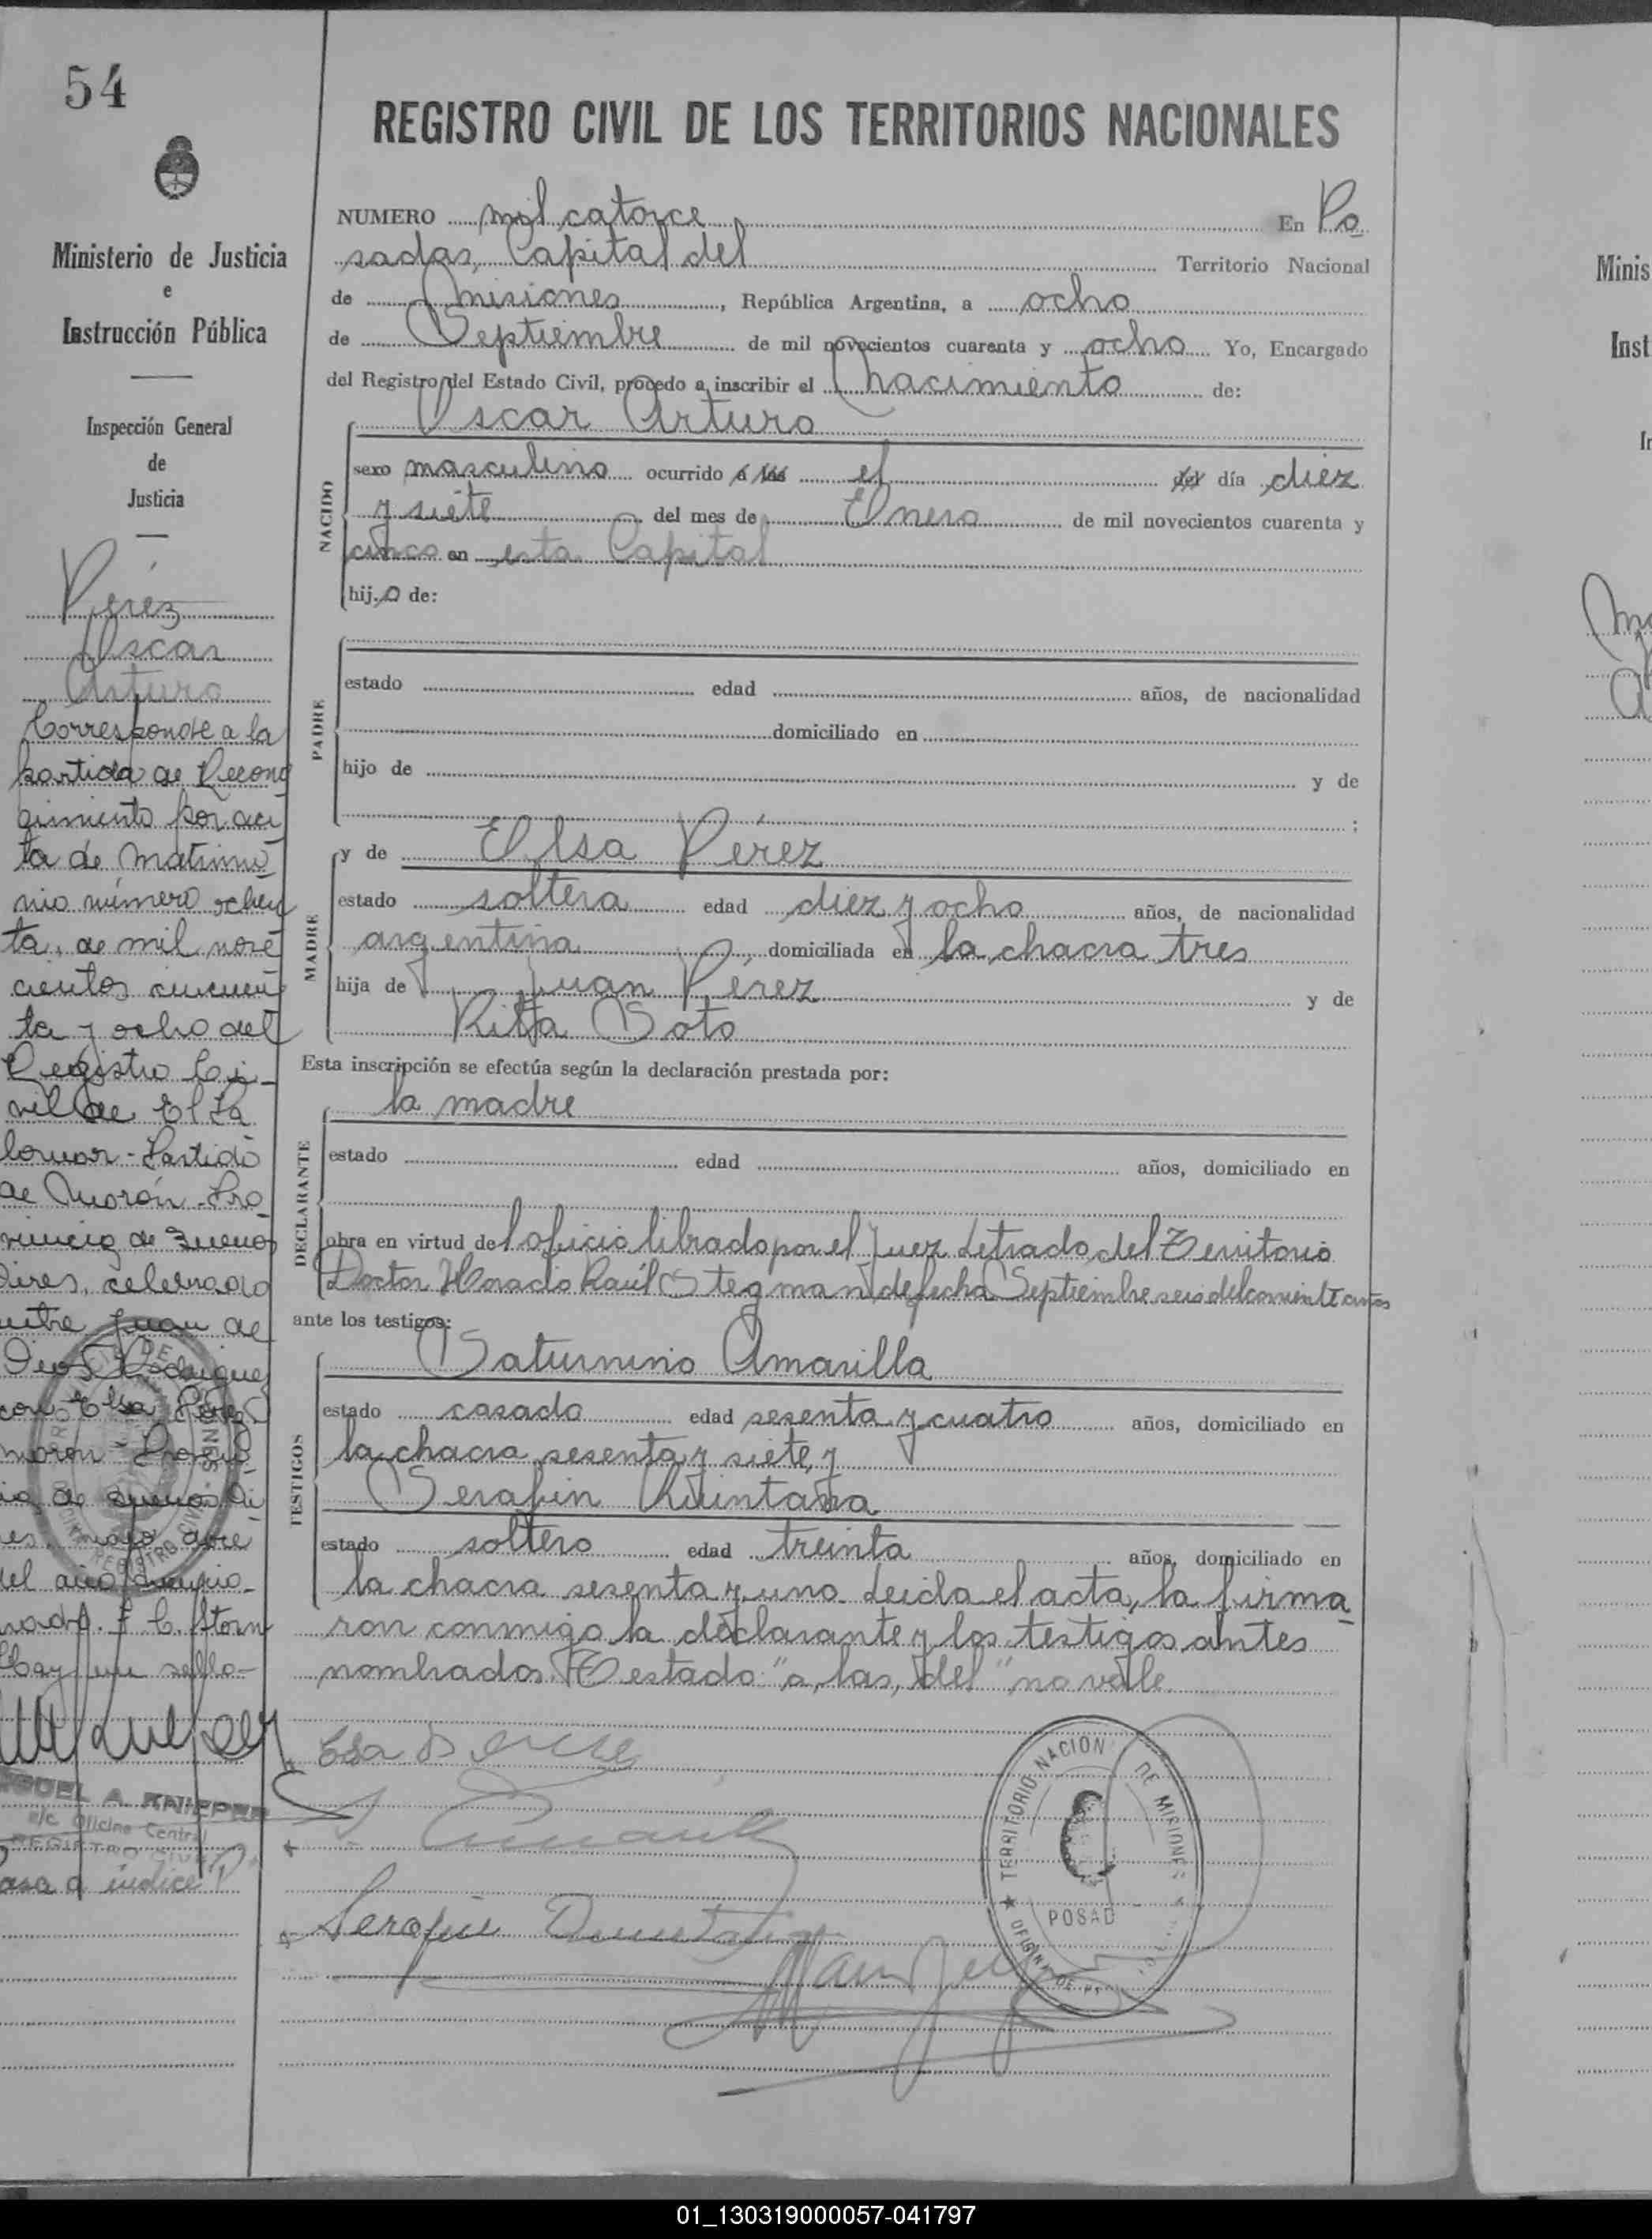 54
REGISTRO CIVIL DE LOS TERRITORIOS NACIONALES
Ministerio de Justicia
e
Instrucción Pública
Inspección General
de
Justicia
Pérez
Oscar
Arturo
Corresponde a la
partida de Recono
cimiento por ac
ta de matrimo
nio número ochen
ta, de mil nove
cientos cincuen
ta y ocho del
Registro Ci-
vil de El Pa
lomar - Partido
de Morón - Pro
vincia de Buenos
Aires, celebrado
entre Juan de
Dios Rodrigue
con Elsa Pérez
morón - Provin
cia de Buenos Ai
res
del año
Hay un sello-
MIGUEL A. KNIEPER
e/c Oficina Central
REGISTRO CIVIL
Pasa a índice
NUMERO mil catorce En Po
sadas, Capital del Territorio Nacional
de Misiones, República Argentina, a ocho
de Septiembre de mil novecientos cuarenta y ocho Yo, Encargado
del Registro del Estado Civil, procedo a inscribir el nacimiento de:
NACIDO
Oscar Arturo
sexo masculino ocurrido a las el del día diez
y siete del mes de Enero de mil novecientos cuarenta y
cinco en esta Capital
hijo de:
PADRE
estado edad años, de nacionalidad
domiciliado en
hijo de y de
;
MADRE
y de Elsa Pérez
estado soltera edad diez y ocho años, de nacionalidad
argentina domiciliada en la chacra tres
hija de Juan Pérez y de
Rita Soto
Esta inscripción se efectúa según la declaración prestada por:
DECLARANTE
la madre
estado edad años, domiciliado en
obra en virtud del oficio librado por el Juez Letrado del Territorio
Doctor Horacio Raúl Stegmann de fecha Septiembre seis del corriente año
ante los testigos:
TESTIGOS
Saturnino Amarilla
estado casado edad sesenta y cuatro años, domiciliado en
la chacra sesenta y siete, y
Serafin Quintana
estado soltero edad treinta años, domiciliado en
la chacra sesenta y uno. Leida el acta, la firma
ron conmigo la declarante y los testigos antes
nombrados. Testado: "a, las, del" no vale
Serafin Quintana
TERRITORIO NACION DE MISIONES
POSAD
Minis
Inst
In
01_130319000057-041797